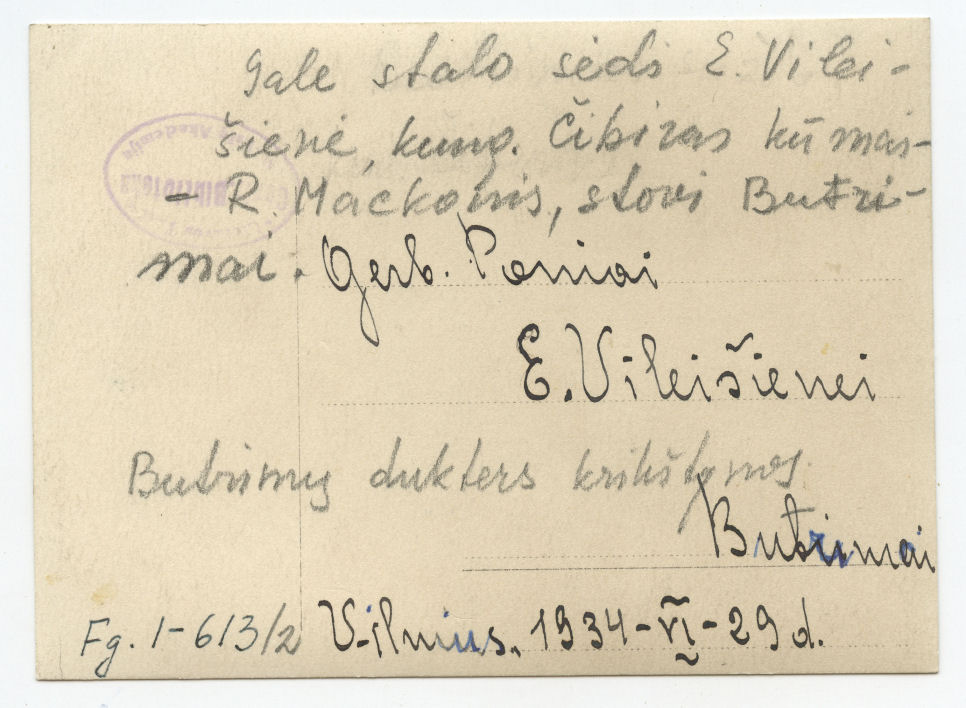 Gale stalo sėdi E. Vilei-
šienė, kung. Čibiras kūmas-
- R. Mackonis, stovi Butri-
mai.
Gerb. Poniai
E. Vileišienei
Butrimų dukters krikštynos.
Butrimai
Fg. 1-613/2
Vilnius, 1934-VI-29 d.